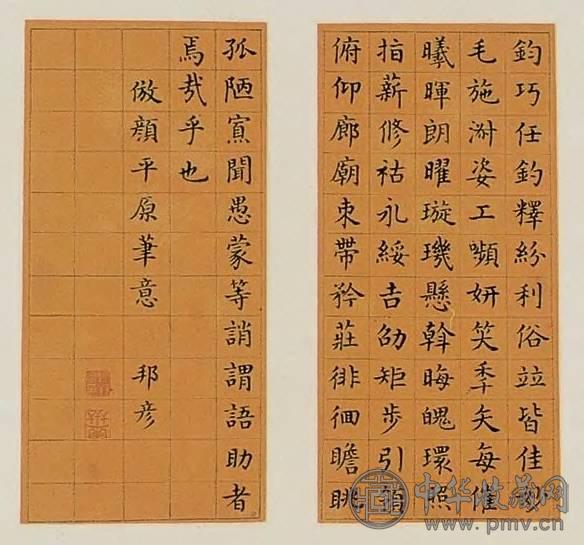 鈞巧任釣釋紛利俗竝皆佳妙
毛施淑姿工嚬妍笑秊矢每催
曦暉朗曜璇璣懸斡晦魄環照
指薪修祜永綏吉劭矩步引領
俯仰廊廟束帶矜莊徘徊瞻眺
孤陋寡聞愚蒙等誚謂語助者
焉哉乎也
倣顏平原筆意 邦彥
中华收藏网
www.pmv.cn